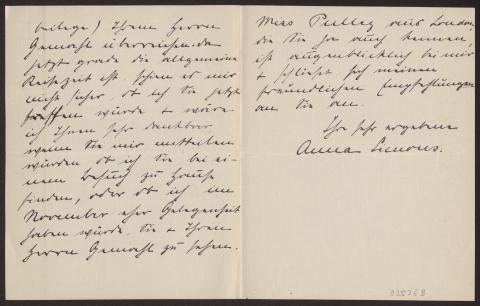 beilege) Ihrem Herrn
Gemahl überreichen. Da
jetzt grade die allgemeine
Reisezeit ist schien es mir
nicht sicher, ob ich Sie jetzt
treffen würde + wäre
ich Ihnen sehr dankbar
wenn Sie mir mitteilen
würden ob ich Sie bei ei-
nem Besuch zu Hause
finden, oder ob ich im
November eher Gelegenheit
haben würde, Sie + Ihren
Herrn Gemahl zu sehen.
Miss Pulley aus London,
die Sie ja auch kennen,
ist augenblicklich bei mir
+ schließt sich meinen
freundlichen Empfehlungen
an Sie an.
Ihre sehr ergebene
Anna Simons.